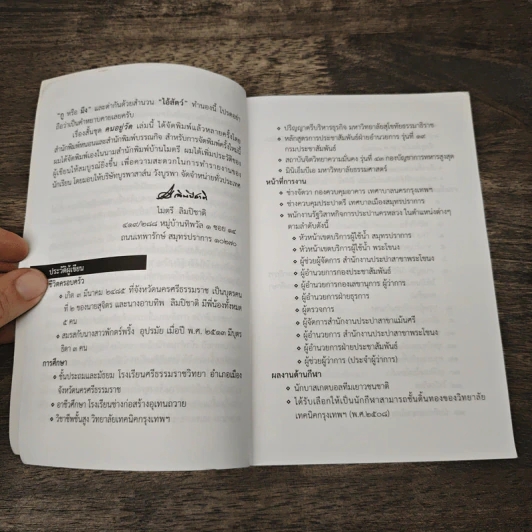 "กู หรือ มึง" และคำกันด้วยสำนวน "ไอ้สัตว์" ทำนองนี้ โปรดอย่า
ถือว่าเป็นคำหยาบคายเลยครับ
เรื่องสั้นชุด คนอยู่วัด เล่มนี้ ได้จัดพิมพ์แล้วหลายครั้งโดย
สำนักพิมพ์ต้นอ้อและสำนักพิมพ์บรรณกิจ สำหรับการจัดพิมพ์ครั้งใหม่นี้
ผมได้จัดพิมพ์เองในนามสำนักพิมพ์บ้านไมตรี ผมได้เพิ่มประวัติของ
ผู้เขียนให้สมบูรณ์ยิ่งขึ้น เพื่อความสะดวกในการทำรายงานของ
นักเรียน โดยมอบให้บริษัทบูรพาสาส์น วังบูรพา จัดจำหน่ายทั่วประเทศ
ไมตรี ลิมปิชาติ
๔๑๙/๒๘๘ หมู่บ้านทิพวัล ๑ ซอย ๑๔
ถนนเทพารักษ์ สมุทรปราการ ๑๐๒๗๐
ประวัติผู้เขียน
ชีวิตครอบครัว
เกิด ๓ มีนาคม ๒๔๘๕ ที่จังหวัดนครศรีธรรมราช เป็นบุตรคน
ที่ ๒ ของนายสุจิตร และนางอาบทิพ ลิมปิชาติ มีพี่น้องทั้งหมด
๕ คน
สมรสกับนางสาวพักตร์พริ้ง อุปรมัย เมื่อปี พ.ศ. ๒๕๑๓ มีบุตร
ธิดา ๓ คน
การศึกษา
ชั้นประถมและมัธยม โรงเรียนศรีธรรมราชวิทยา อำเภอเมือง
จังหวัดนครศรีธรรมราช
อาชีวศึกษา โรงเรียนช่างก่อสร้างอุเทนถวาย
วิชาชีพชั้นสูง วิทยาลัยเทคนิคกรุงเทพฯ
ปริญญาตรีบริหารธุรกิจ มหาวิทยาลัยสุโขทัยธรรมาธิราช
หลักสูตรการประชาสัมพันธ์ฝ่ายอำนวยการ รุ่นที่ ๑๙
กรมประชาสัมพันธ์
สถาบันจิตวิทยาความมั่นคง รุ่นที่ ๑๓ กองบัญชาการทหารสูงสุด
มินิเอ็มบีเอ มหาวิทยาลัยธรรมศาสตร์
หน้าที่การงาน
ช่างจัตวา กองควบคุมอาคาร เทศบาลนครกรุงเทพฯ
ช่างควบคุมประปาตรี เทศบาลเมืองสมุทรปราการ
พนักงานรัฐวิสาหกิจการประปานครหลวง ในตำแหน่งต่างๆ
ตามลำดับดังนี้
หัวหน้าเขตบริการผู้ใช้น้ำ สมุทรปราการ
หัวหน้าเขตบริการผู้ใช้น้ำ พระโขนง
ผู้ช่วยผู้จัดการ สำนักงานประปาสาขาพระโขนง
ผู้อำนวยการกองประชาสัมพันธ์
ผู้อำนวยการกองเลขานุการ ผู้ว่าการ
ผู้อำนวยการฝ่ายธุรการ
ผู้ตรวจการ
ผู้จัดการสำนักงานประปาสาขาแม้นศรี
ผู้อำนวยการ สำนักงานประปาสาขาพระโขนง
ผู้อำนวยการฝ่ายประชาสัมพันธ์
ผู้ช่วยผู้ว่าการ (ประจำผู้ว่าการ)
ผลงานด้านกีฬา
นักบาสเกตบอลทีมเยาวชนชาติ
ได้รับเลือกให้เป็นนักกีฬาสามารถชั้นต้นทองของวิทยาลัย
เทคนิคกรุงเทพฯ (พ.ศ.๒๕๐๘)